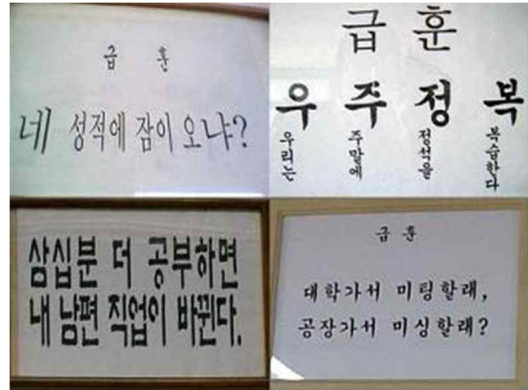 급 훈
네 성적에 잠이 오냐?
급 훈
우 주 정 복
우리는 주말에 정석을 복습한다
삼십분 더 공부하면
내 남편 직업이 바뀐다.
급 훈
대학가서 미팅할래,
공장가서 미싱할래?